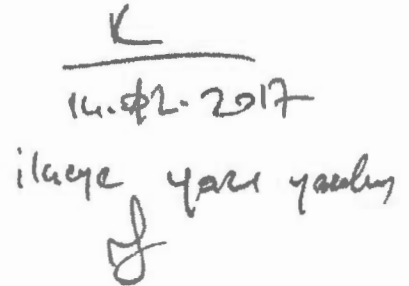 K
14.02.2017
ilçeye yazı yazalım